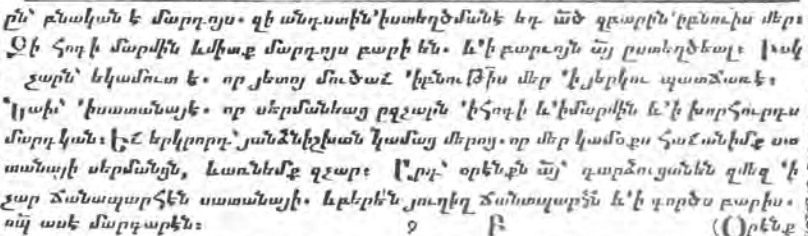 րն՝ բնական է մարդոյս. զի անդստին՝ ի ստեղծմանէ եդ ած զբարին՝ ի բնութիս մեր։
Զի հոգի մարմին և միտք մարդոյս բարի են. և՝ի բարւոյն այ ըստեղծեալ։ Իսկ
չարն՝ եկամուտ է. որ յետոյ մուծաւ ՚ի բնութիս մեր ՚ի յերկու պատճառէ։
Նախ՝ ՚ի սատանայէ. որ սերմանեաց զչարն ՚ի հոգի և՝ի մարմին և՝ի խորհուրդս
մարդկան։ Եւ երկրորդ՝ յանձնիշխան կամաց մերոյ. որ մեր կամօքս հաւանիմք սա
տանայի սերմանցն, և առնեմք զչար։ Արդ՝ օրէնքն այ՝ դարձուցանեն զմեզ ՚ի
չար ճանապարհէն սատանայի. և բերեն յուղիղ ճանապարհն և՝ի գործս բարիս.
որպ ասէ մարգարէն։ 9 Բ (Օրէնք